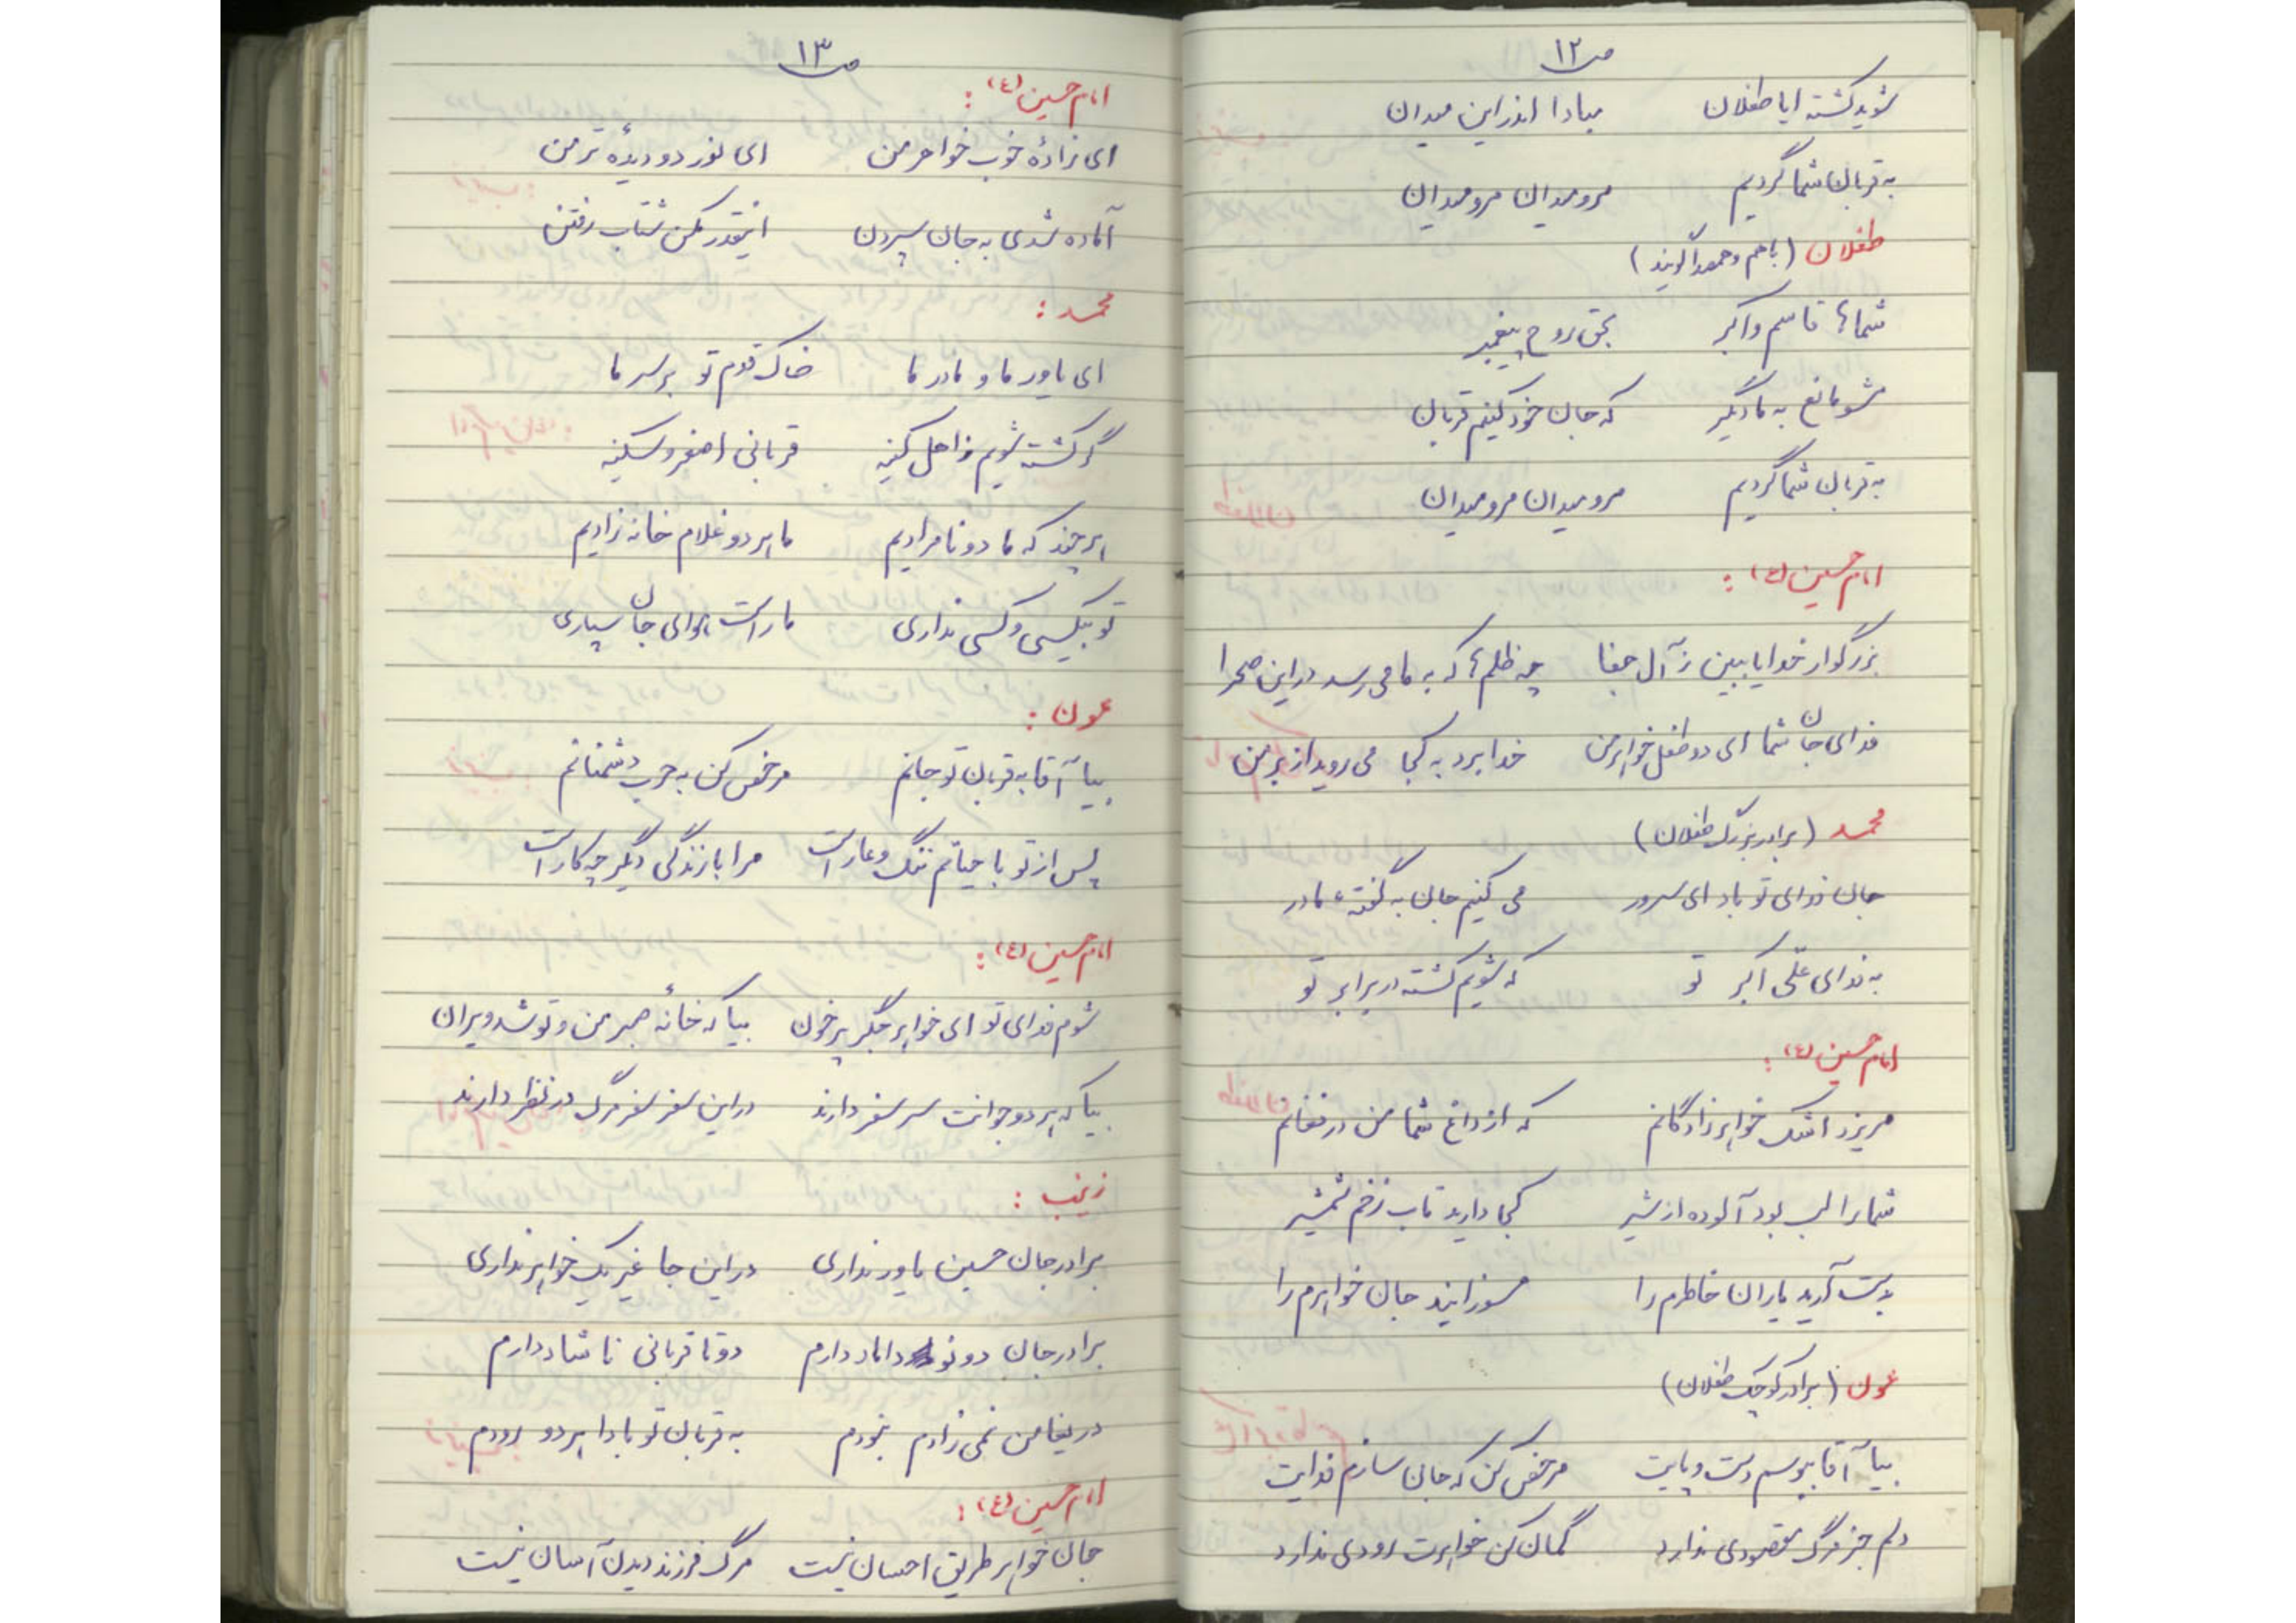 ص ۱۲
شوید کشته ایا طفلان مبادا اندراین میدان
به قربان شما گردیم مرو میدان مرو میدان
طفلان (باهم و همصدا گویند)
شماها قاسم و اکبر بحق روح پیغمبر
مشو مانع به ما دیگر که جان خود کنیم قربان
به قربان شما گردیم مرو میدان مرو میدان
امام حسین (ع):
بزرگوار خدایا ببین ز آل جفا چه ظلمها که به ما می رسد دراین صحرا
فدای جان شما ای دو طفل خواهر من خدا برد به کجا می روید از بر من
محمد (برادر بزرگ طفلان)
جان فدای تو باد ای سرور می کنیم جان به گفتهٔ مادر
به فدای علّی اکبر تو که شویم کشته در برابر تو
امام حسین (ع):
مریزد اشک خواهر زادگانم که از داغ شما من در فغانم
شما را لب بود آلوده از شیر کجا دارید تاب زخم شمشیر
بدست آرید یاران خاطرم را مسوزانید جان خواهرم را
عون (برادر کوچک طفلان)
بیا آقا ببوسم دست و پایت مرخص کن که جان سازم فدایت
دلم جز مرگ مقصودی ندارد گمان کن خواهرت رودی ندارد
ص ۱۳
امام حسین (ع):
ای زادهٔ خوب خواهر من ای نور دو دیدهٔ تر من
آماده شدی به جان سپردن اینقدر مکن شتاب رفتن
محمد:
ای یاور ما و مادر ما خاک قدم تو بر سر ما
گر کشته شویم ز اهل کینه قربانی اصغر و سکینه
هر چند که ما دو نامرادیم ما هر دو غلام خانه زادیم
تو بیکسی و کسی نداری ما راست هوای جان سپاری
عون:
بیا آقا به قربان تو جانم مرخص کن به حرب دشمنانم
پس از تو با حیاتم ننگ و عار است مرا با زندگی دیگر چه کار است
امام حسین (ع):
شوم فدای تو ای خواهر جگر پرخون بیا که خانهٔ صبر من و تو شد ویران
بیا که هر دو جوانت سر سفر دارند دراین سفر سفر مرگ در نظر دارند
زینب:
برادر جان حسین یاور نداری دراین جا غیر یک خواهر نداری
برادر جان دو نو داماد دارم دو تا قربانی ناشاد دارم
دریغا من نمی زادم بخودم به قربان تو بادا هر دو رودم
امام حسین (ع):
جان خواهر طریق احسان نیست مرگ فرزند دیدن آسان نیست